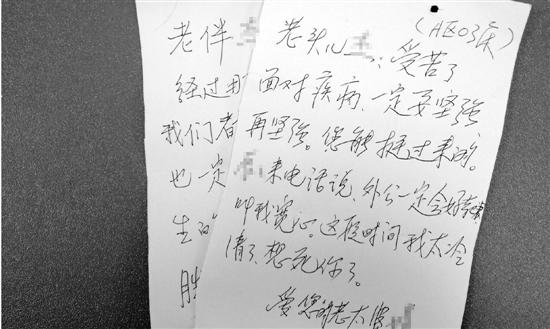 老伴
经过
我们
也一定
生
胜
(A区03床)
老头儿：受苦了
面对疾病，一定要坚强
再坚强。您能挺过来的。
来电话说、外公一定会好起来
叫我宽心。这段时间我太冷
清了、想死你了。
爱您的老太婆